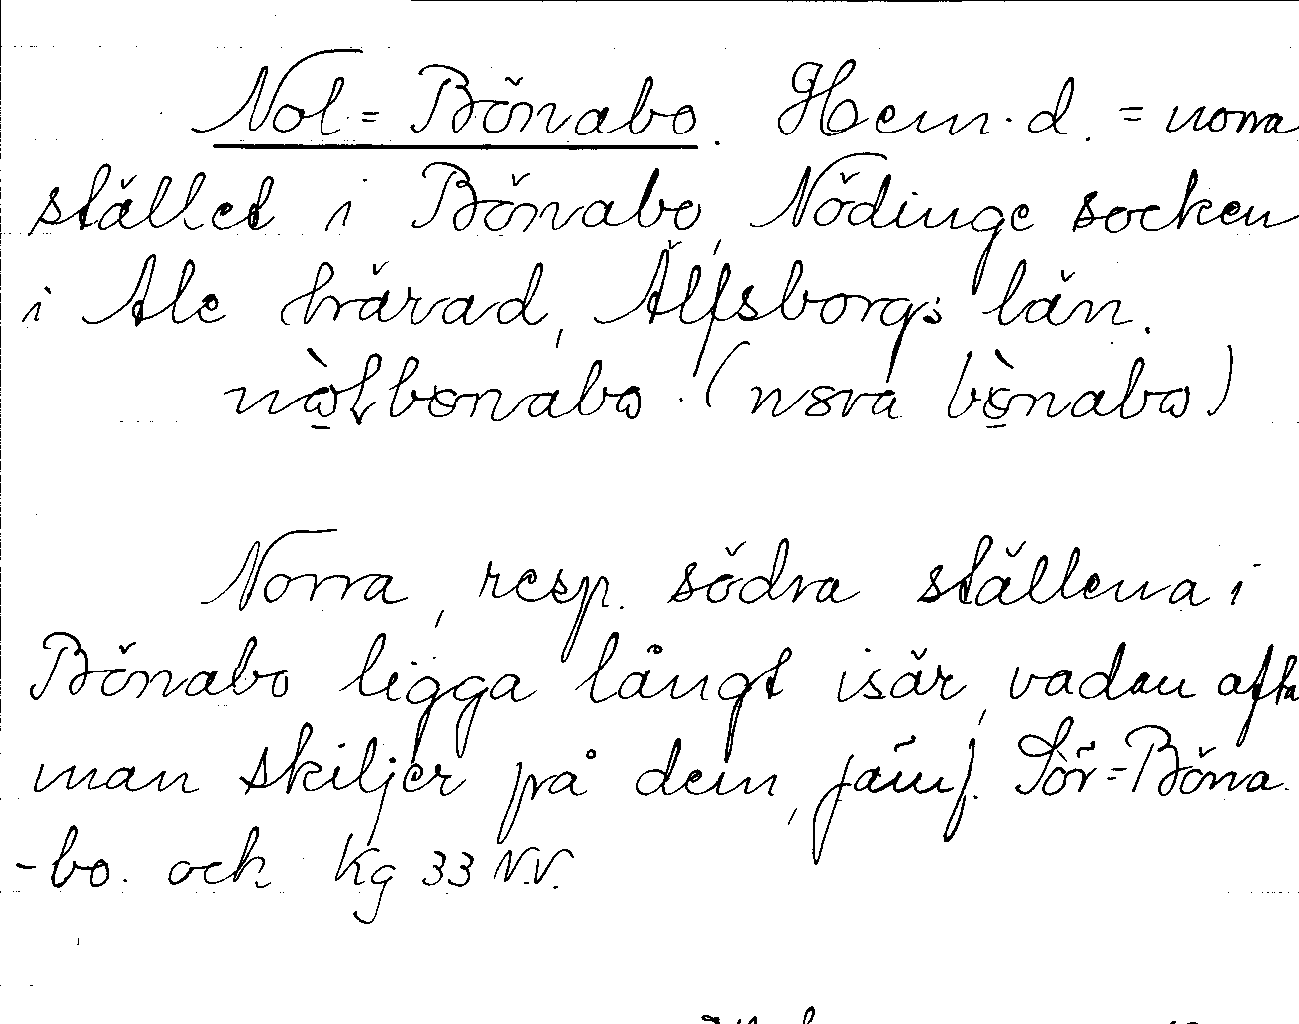 Nol=Bönabo. Hem.d. = norra
stället i Bönabo, Nödinge socken
i Ale härad, Älfsborgs län.
nòlbɵnabω. (nɵra bɵ̀nabω)
Norra, resp. södra ställena i
Bönabo ligga långt isär, vadan ofta
man skiljer på dem, jämf. Sör=Böna
-bo. och Kg 33 N.V.